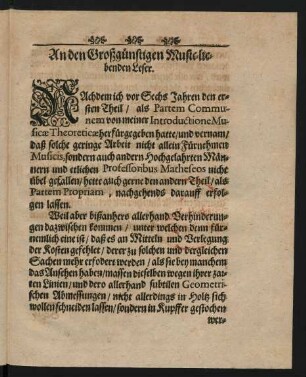 An den Großgünstigen Music-lie-
benden Leser.
NAchdem ich vor Sechs Jahren den er-
sten Theil / als Partem Commu-
nem von meiner Introductione Mu-
sicæ Theoreticæ herfürgegeben hatte / und vernam /
daß solche geringe Arbeit nicht allein Fürnehmen
Musicis, sondern auch andern Hochgelahrten Män-
nern und etlichen Professoribus Matheseos nicht
übel gefallen / hette auch gerne den andern Theil / als
Partem Propriam, nachgehends darauff erfol-
gen lassen.
Weil aber bißanhero allerhand Verhinderun-
gen dazwischen kommen / unter welchen denn für-
nemlich eine ist / daß es an Mitteln und Verlegung
der Kosten gefehlet / derer zu solchen und dergleichen
Sachen mehr erfodert werden / als sie bey manchem
das Ansehen haben / massen dieselben wegen ihrer zar-
ten Linien / und dero allerhand subtilen Geometri-
schen Abmessungen / nicht allerdings in Holtz sich
wollen schneiden lassen / sondern in Kupffer gestochen
wer-